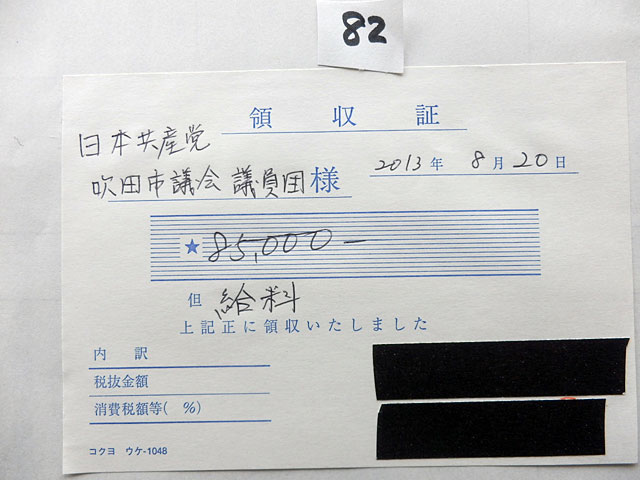 82
領収証
日本共産党
吹田市議会議員団様
2013年8月20日
★85,000-
但 給料
上記正に領収いたしました
内訳
税抜金額
消費税額等( %)
コクヨ ウケ-1048